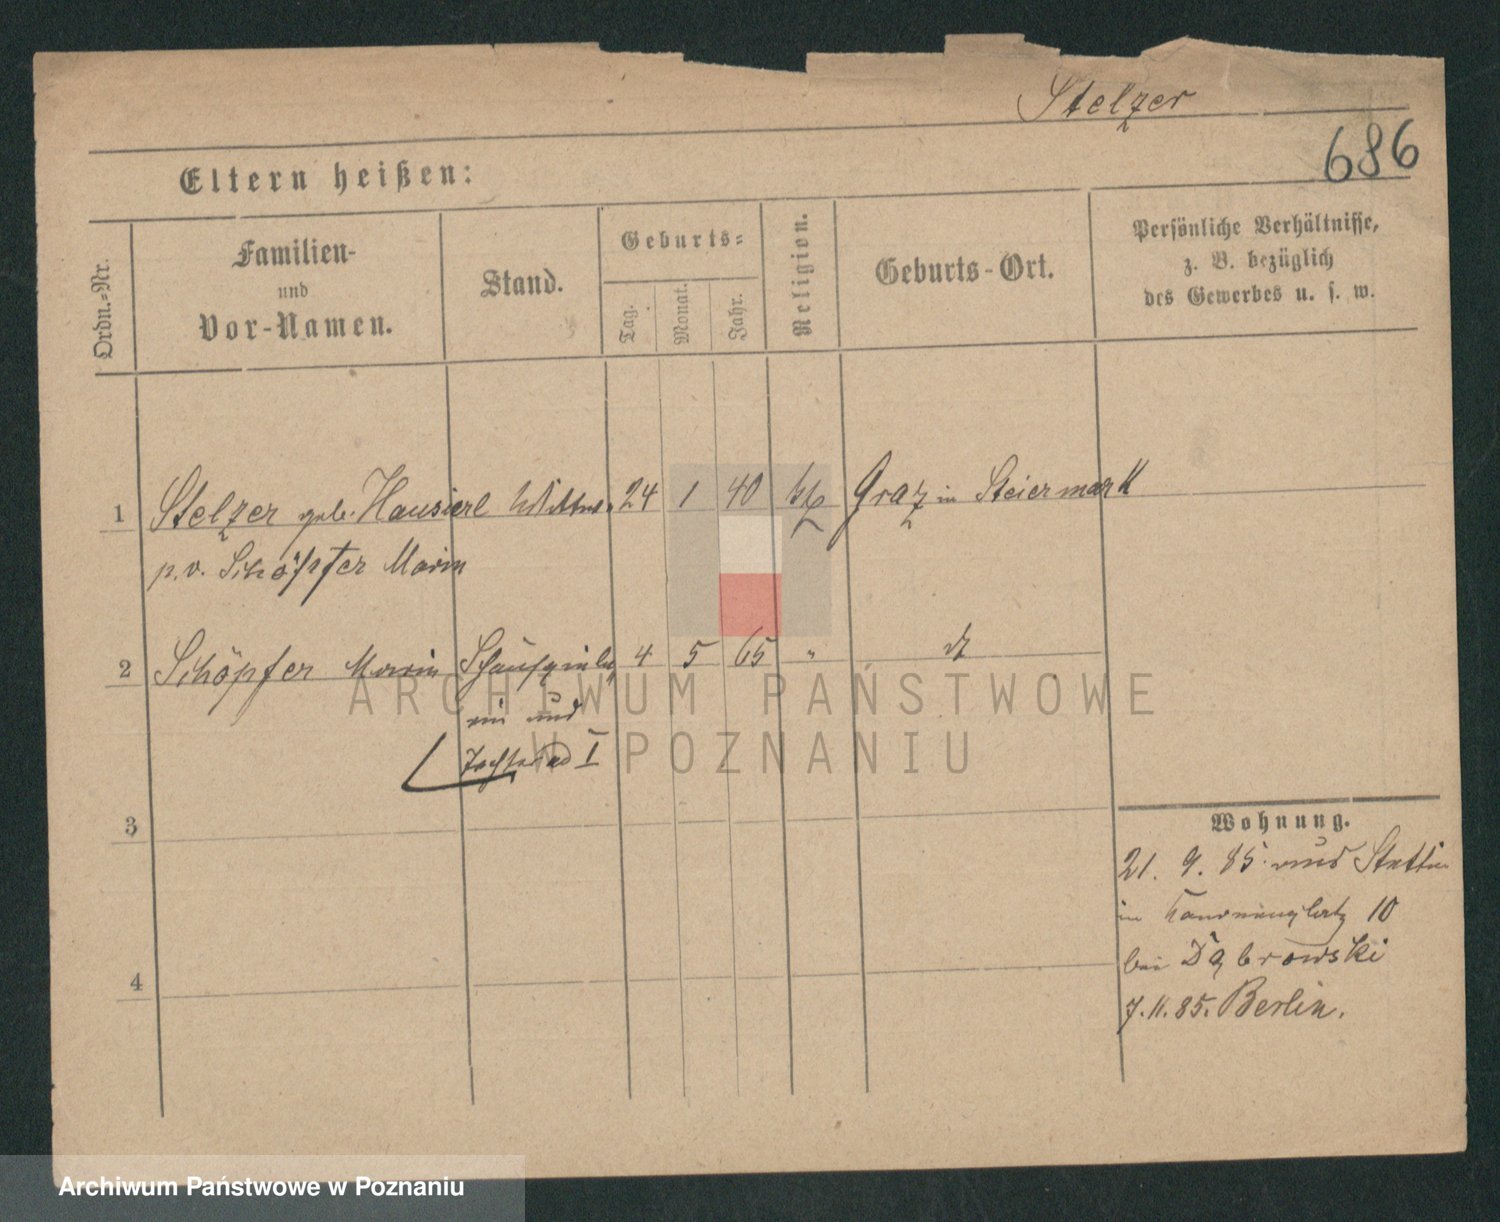 Stelzer
686
Eltern heißen:
Ordn.=Nr.
Familien-
und
Vor-Namen.
Stand.
Geburts=
Tag.
Monat.
Jahr.
Religion.
Geburts-Ort.
Persönliche Verhältnisse,
z. B. bezüglich
des Gewerbes u. s. w.
1 Stelzer geb. Hausierl Wittwe 24 1 40 kth Graz in Steiermark
p.v. Schöpfer Marie
2 Schöpfer Marie Schauspiele 4 5 65 " dt
rin und
Tochter ad I
3
4
Wohnung.
21. 9. 85. aus Stettin
10
bei Dąbrowski
7. 11. 85. Berlin.
ARCHIWUM PAŃSTWOWE
W POZNANIU
Archiwum Państwowe w Poznaniu